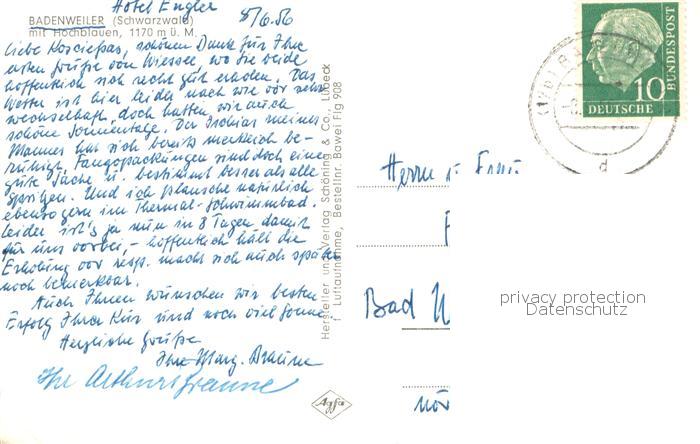 Hotel Engler
5/6.56
BADENWEILER (Schwarzwald)
mit Hochblauen, 1170 m ü. M.
Liebe schönen Dank für Ihre
ersten Grüße von Wiessee, wo Sie beide
hoffentlich sich recht gut erholen. Das
Wetter ist hier leider nach wie vor sehr
wechselhaft, doch hatten wir auch
schöne Sonnentage. Der Ischias meines
Mannes hat sich bereits merklich be-
ruhigt, Fangopackungen sind doch eine
gute Sache u. bestimmt besser als alle
Spritzen. Und ich plansche natürlich
im Thermal-Schwimmbad.
Leider ist's ja nun in 8 Tagen damit
für uns vorbei, - hoffentlich hält die
Erholung vor resp. macht sich auch später
noch bemerkbar.
Auch Ihnen wünschen wir besten
Erfolg Ihrer Kur und noch viel Sonne
Herzliche Grüße
Ihre Marg. Braune
Ihr Arthur Braune
Hersteller und Verlag Schöning & Co., Lübeck
Luftaufnahme, Bestellnr. Bawei Flg 908
Agfa
DEUTSCHE
BUNDESPOST
10
d
Herrn u. Frau
Bad W
privacy protection
Datenschutz